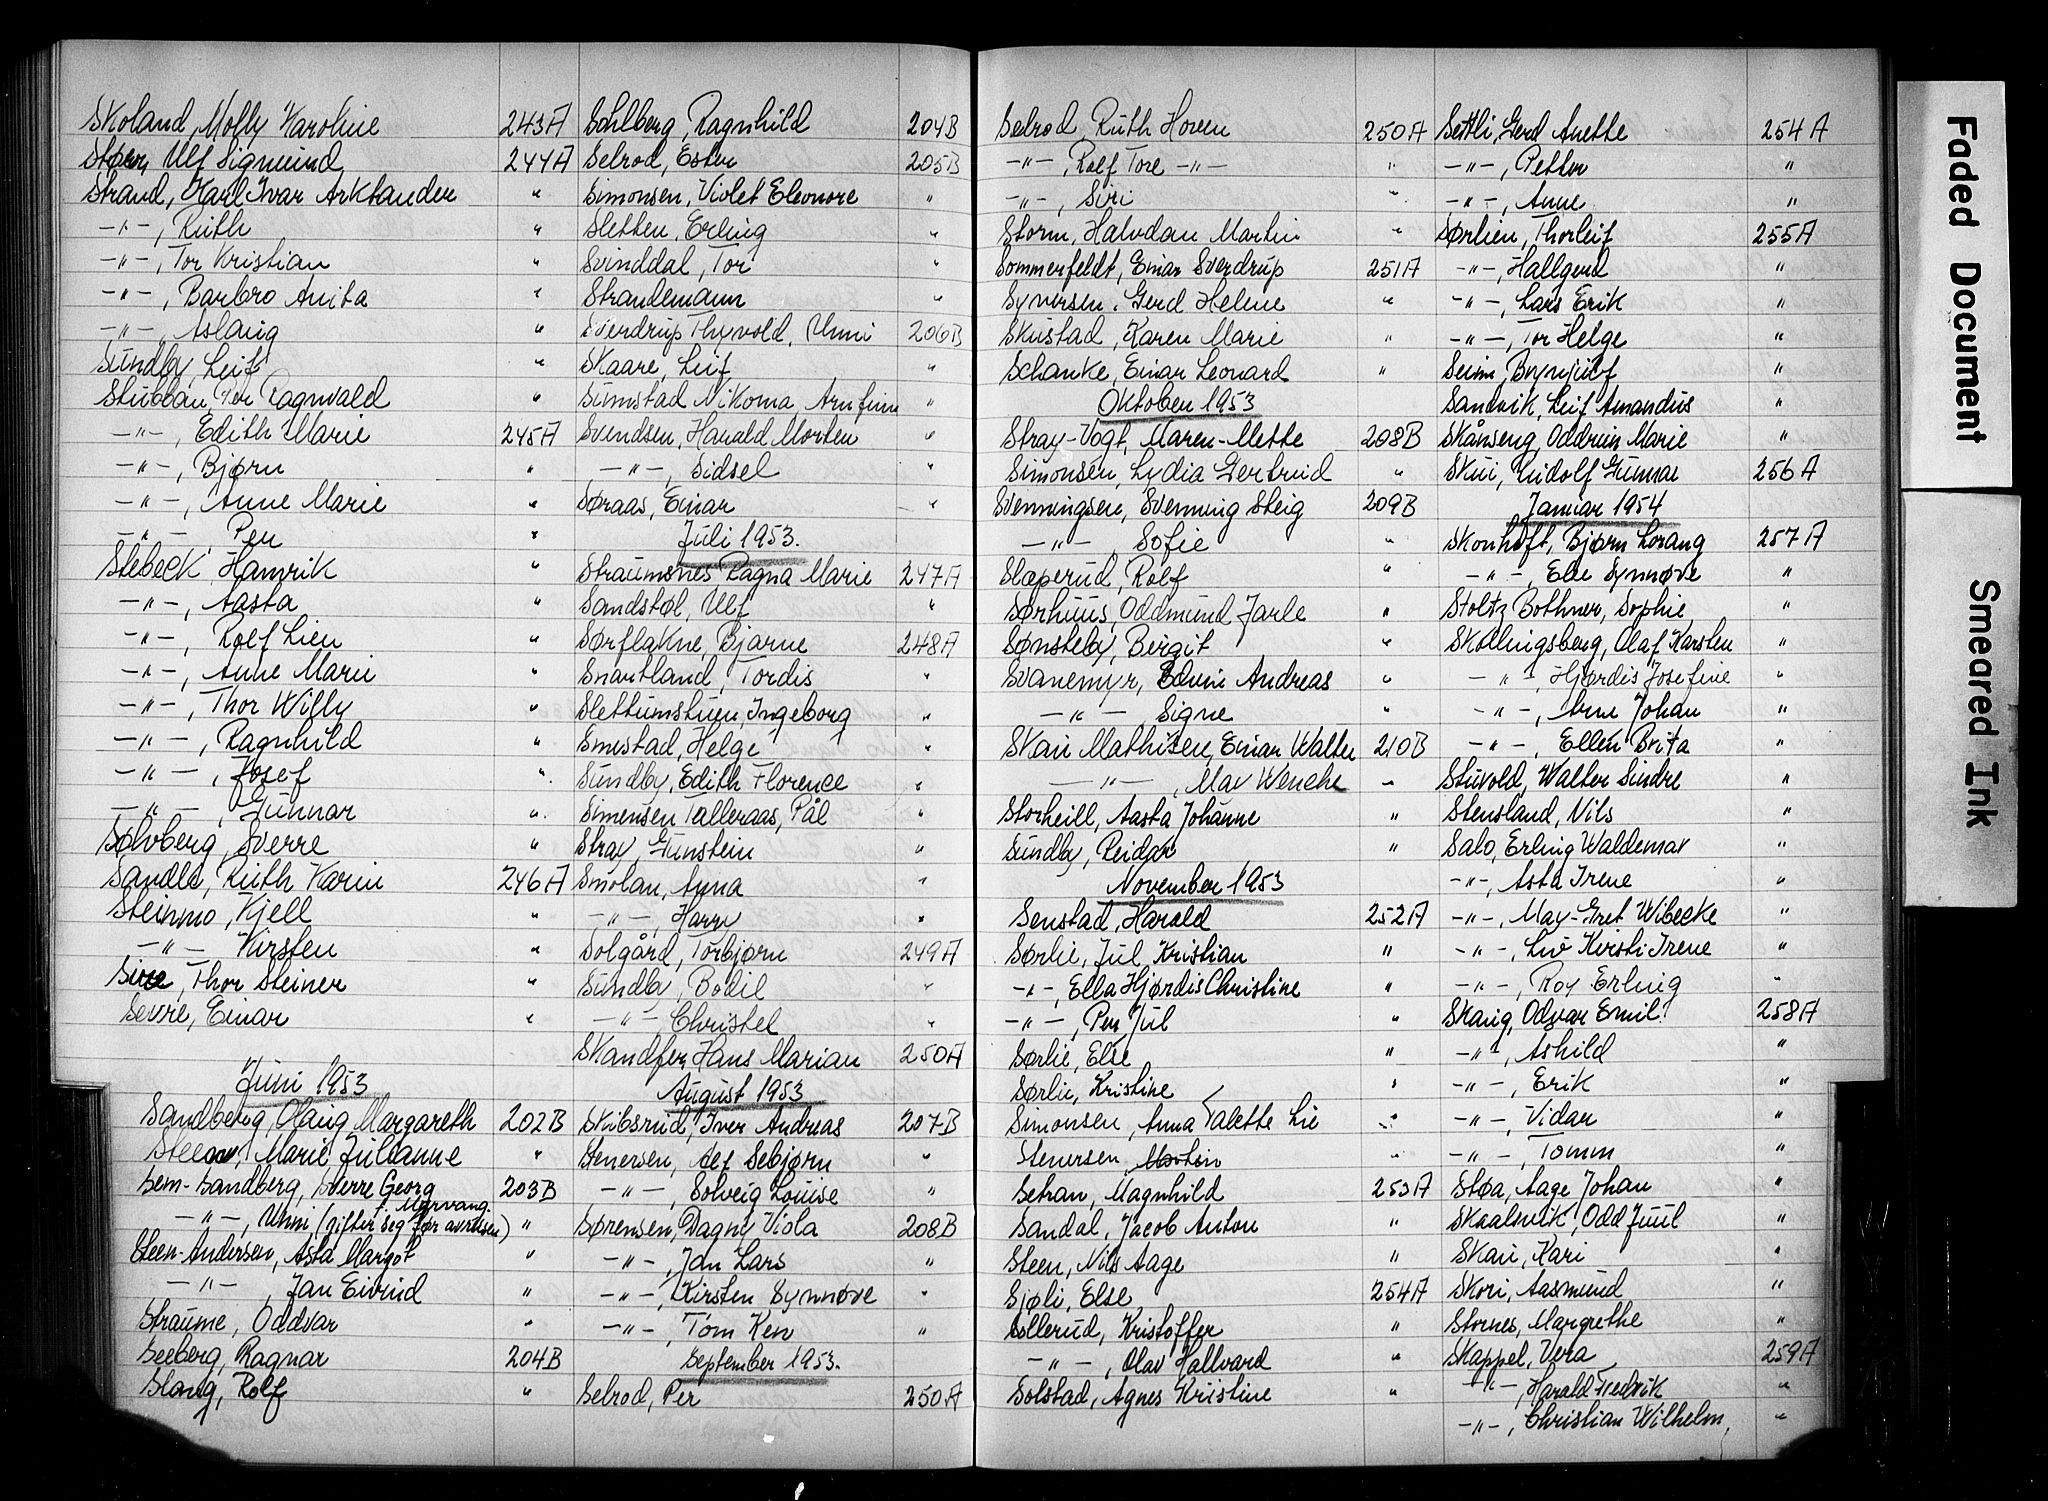 Skoland, Molly Karoline 243A
Støen, Ulf Sigmund 244A
Strand, Karl Ivar Arktander "
-"-, Ruth "
-"-, Tor Kristian "
-"-, Barbro Anita "
-"-, Aslaug "
Sundby, Leif "
Stubban, Per Ragnvald "
-"-, Edith Marie 245A
-"-, Bjørn "
-"-, Anne Marie "
-"-, Per "
Slebeck, Hanrik "
-"-, Aasta "
-"-, Rolf Lien "
-"-, Anne Marie "
-"-, Thor Willy "
-"-, Ragnhild "
-"-, Josef "
-"-, Gunnar "
Sølvberg, Sverre "
Sandlo, Ruth Karin 246A
Steinmo, Kjell "
-"- Kirsten "
, Thor Steiner "
Sevre, Einar "
Juni 1953
Sandberg, Olaug Margareth 202B
Steen, Marie Julianne "
Sem-Sandberg, Sverre Georg 203B
f. Myrvang.
-"-, Unni (gifter seg før avreisen) "
Steen-Andersen, Asta Margot "
-"-, Jan Eivind "
Straume, Oddvar "
Seeberg, Ragnar 204B
Slang, Rolf "
Sohlberg, Ragnhild 204B
Selrod, Ester 205B
Simonsen, Violet Eleonore "
Sletten, Erling "
Svinddal, Tor "
Strandemann "
Sverdrup Thygvold, Unni 206B
Skaare, Leif "
Sumstad Nikoma Arnfinn "
Svendsen, Harald Morten "
-"-, Sidsel "
Søraas, Einar "
Juli 1953.
Straumsnes Ragna Marie 247A
Sandstøl, Ulf "
Sørflakne, Bjarne 248A
Snartland, Tordis "
Slettumstuen, Ingeborg "
Smestad, Helge "
Sundby, Edith Florence "
Simensen Talleraas, Pål "
Stray, Gunstein "
Smolan, Anna "
-"-, Harry "
Solgård, Torbjørn 249A
Sundby, Bodil "
-"-, Christel "
Skandfer, Hans Marian 250A
August 1953
Skibsrud, Iver Andreas 207B
Stenersen, Alf Sebjørn "
-"-, Solveig Louise "
Sørensen, Dagny Viola 208B
-"-, Jan Lars "
-"-, Kirsten Synnøve "
-"-, Tom Ken "
September 1953.
Selrod, Per 250A
Selrod, Ruth Hoven 250A
-"-, Rolf Tore -"- "
-"-, Siri "
Storm, Halvdan Martin "
Sommerfeldt, Einar Sverdrup 251A
Syversen, Gerd Helene "
Skustad, Karen Marie "
Schanke, Einar Leonard "
Oktober 1953
Stray-Vogt, Maren-Mette 208B
Simonsen, Lydia Gertrud "
Svenningsen, Svenning Steig 209B
-"- Sofie "
Slaperud, Rolf
Sørhuus, Oddmund Jarle "
Sønsteby, Bergit "
Svanemyr, Edvin Andreas "
-"- Signe "
Skau Mathisen, Einar Walter 210B
-"-, May Wenche "
Storheill, Aasta Johanne "
Sundby, Reidar "
November 1953
Senstad, Harald 252A
Sørlie, Jul Kristian "
-"-, Ella Hjørdis Christine "
-"-, Per Jul "
Sørlie, Else "
Sørlie, Kristine "
Simonsen, Anna Valette Lie "
Stenersen, Martin "
Setran, Magnhild 253A
Sandal, Jacob Anton "
Steen, Nils Aage "
Sjøli, Else 254A
Sollerud, Kristoffer "
-"-, Olav Hallvard "
Solstad, Agnes Kristine "
Settli, Gerd Anette 254A
-"-, Petter "
-"-, Anne "
Sørlien, Thorleif 255A
-"-, Hallgerd "
-"-, Lars Erik "
-"-, Tor Helge "
Seim, Brynjulf "
Sandvik, Leif Amandus "
Skånseng, Oddrun Marie "
Skui, Rudolf Gunnar 256A
Januar 1954
Skonhoft, Bjørn Lorang 257A
-"-, Else Synnøve "
Stoltz Bothner, Sophie "
Skollingsberg, Olaf Karsten "
-"-, Hjørdis Josefine "
-"-, Arne Johan "
-"-, Ellen Brita "
Stuvold, Walter Sindre "
Stensland, Nils "
Salo, Erling Waldemar "
-"-, Asta Irene "
-"-, May-Gret Wibecke "
-"-, Liv Kirsti Irene "
-"-, Roy Erling "
Skaug, Odvar Emil 258A
-"-, Ashild "
-"-, Erik "
-"-, Vidar "
-"-, Tomm "
Støa, Aage Johan "
Skaalsvik, Odd Juul "
Skau, Kari "
Skori, Aasmund "
Stornes, Margrethe "
Skappel, Vera 259A
-"-, Harald Fredrik "
-"-, Christian Wilhelm, "
Faded Document
Smeared Ink